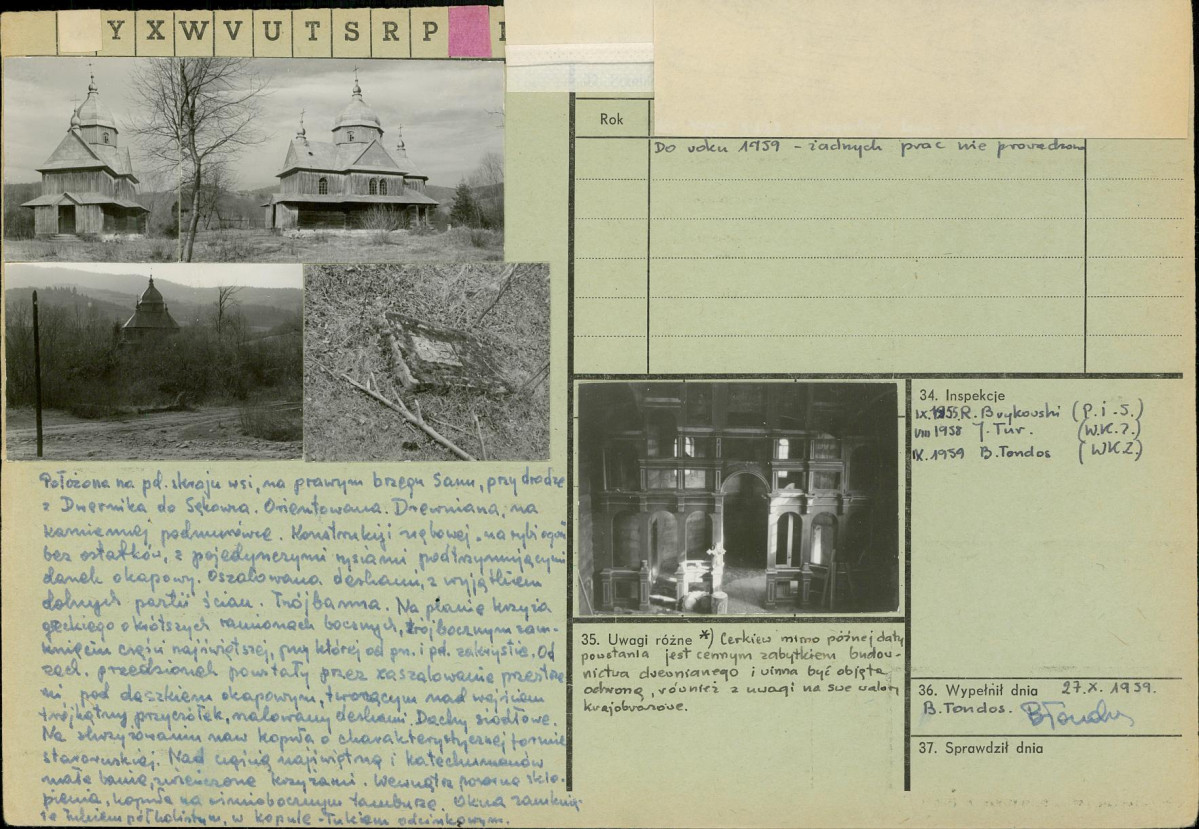 Y X W V U T S R P
Rok
Do roku 1959 – żadnych prac nie prowadzono
34. Inspekcje
IX.1955 R. Brykowski (P.i.S.)
VIII 1958 J. Tur. (W.K.Z.)
IX.1959 B. Tondos (WKZ)
Położona na pd. skraju wsi, na prawym brzegu Sanu, przy drodze
z Dwernika do Sękowa. Orientowana. Drewniana, na
kamiennej podmurówce. Konstrukcji zrębowej, na rybi ogon
bez ostatków, z pojedynczymi rysiami podtrzymującymi
okapowy. Oszalowana deskami, z wyjątkiem
dolnych partii ścian. Trójbanna. Na planie krzyża
greckiego o krótszych ramionach bocznych, trójbocznym zam-
knięciu części najświętszej, przy której od pn. i pd. zakrystie. Od
zach. przedsionek powstały przez zaszalowanie przestrze
ni pod daszkiem okapowym, tworzącym nad wejściem
trójkątny przyczółek, szalowany deskami. Dachy siodłowe.
Na skrzyżowaniu naw kopuła o charakterystycznej formie
staroruskiej. Nad częścią najświętszą i katechumenów
małe banie, zwieńczone krzyżami. Wewnątrz pozorne skle-
pienia, kopuła na ośmiobocznym tamburze. Okna zamknię-
te łukiem półkolistym, w kopule – łukiem odcinkowym.
35. Uwagi różne *) Cerkiew mimo późnej daty
powstania jest cennym zabytkiem budow-
nictwa drewnianego i winna być objęta
ochroną, również z uwagi na swe walory
krajobrazowe.
36. Wypełnił dnia 27.X.1959.
B. Tondos. BTondos
37. Sprawdził dnia